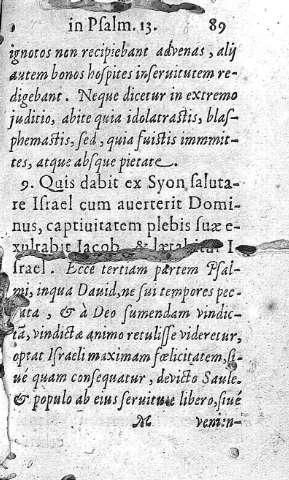 in Psalm. 13. 89
ignotos non recipiebant advenas, alij
autem bonos hospites inservitutem re-
digebant. Neque dicetur in extremo
juditio, abite quia idolatrastis, blas-
phemastis, sed, quia fuistis immmit-
tes, atque absque pietate.
9. Quis dabit ex Syon saluta-
re Israel cum averterit Domi-
nus, captiuitatem plebis suæ e-
xultabit Jacob, & lætabitur I
srael. Ecce tertiam partem Psal-
mi, inqua David, ne sui tempores pec-
cata, & à Deo sumendam vindic-
tã, vindictæ animo retulisse videretur,
optat Israeli maximam fœlicitatem, si-
ue quam consequatur, devicto Saule
& populo ab eius servitute libero, sivé
M veni:n-